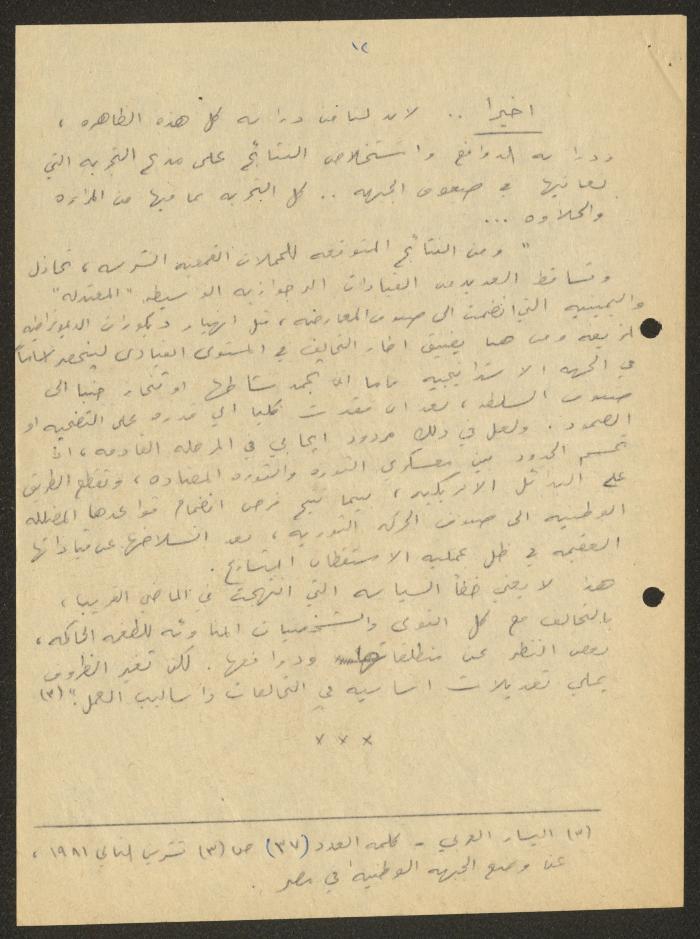 ١٢
اخيرا .. لابد لنا من دراسه كل هذه الظاهره ،
ودراسه الدوافع واستخلاص النتائج على مذبح التجربه التي
نعانيها في صفوف الجبهه .. كل التجربه بما فيها من المراره
والحلاوه ...
" ومن النتائج المتوقعه للحملات القمعيه الشرسه ، تخاذل
وتساقط العديد من القيادات البرجوازيه الوسيطه "المعتدله"
واليمينيه التي انضمت الى صفوف المعارضه ، قبل انهيار ديكورات الديموقراطيه
المزيفه ومن هنا يضيق اطار التحالف في المستوى القيادي لينحصر تماما
في الجبهه الاستراتيجيه فاما ان تجمد نشاطها او تنحاز جنبا الى
صفوف السلطه ، بعد ان فقدت كليا اي قدره على التضحيه او
الصمود . ولعل في ذلك مردود ايجابي في المرحله القادمه ، اذ
تحسم الحدود بين معسكري الثوره والثوره المضاده ، وتقطع الطريق
على البدائل الامريكيه ، بينما تتيح فرص انضمام قواعدها المضلله
الوطنيه الى صفوف الحركه الثوريه ، بعد انسلاخها عن قياداتها
العقيمه في ظل عمليه الاستقطاب المتسارع .
هذا لا يعني خطأ السياسه التي انتهجت في الماضي القريب ،
بالتحالف مع كل القوى والشخصيات المناوئه للطغمه الحاكمه ،
بغض النظر عن منطلقاتها ودوافعها . لكن تغير الظروف
يملي تعديلات اساسيه في التحالفات واساليب العمل ." (٣)
× × ×
(٣) اليسار العربي - كلمه العدد (٣٧) ص (٣) تشرين الثاني ١٩٨١ ،
عن وضع الجبهه الوطنيه في مصر .